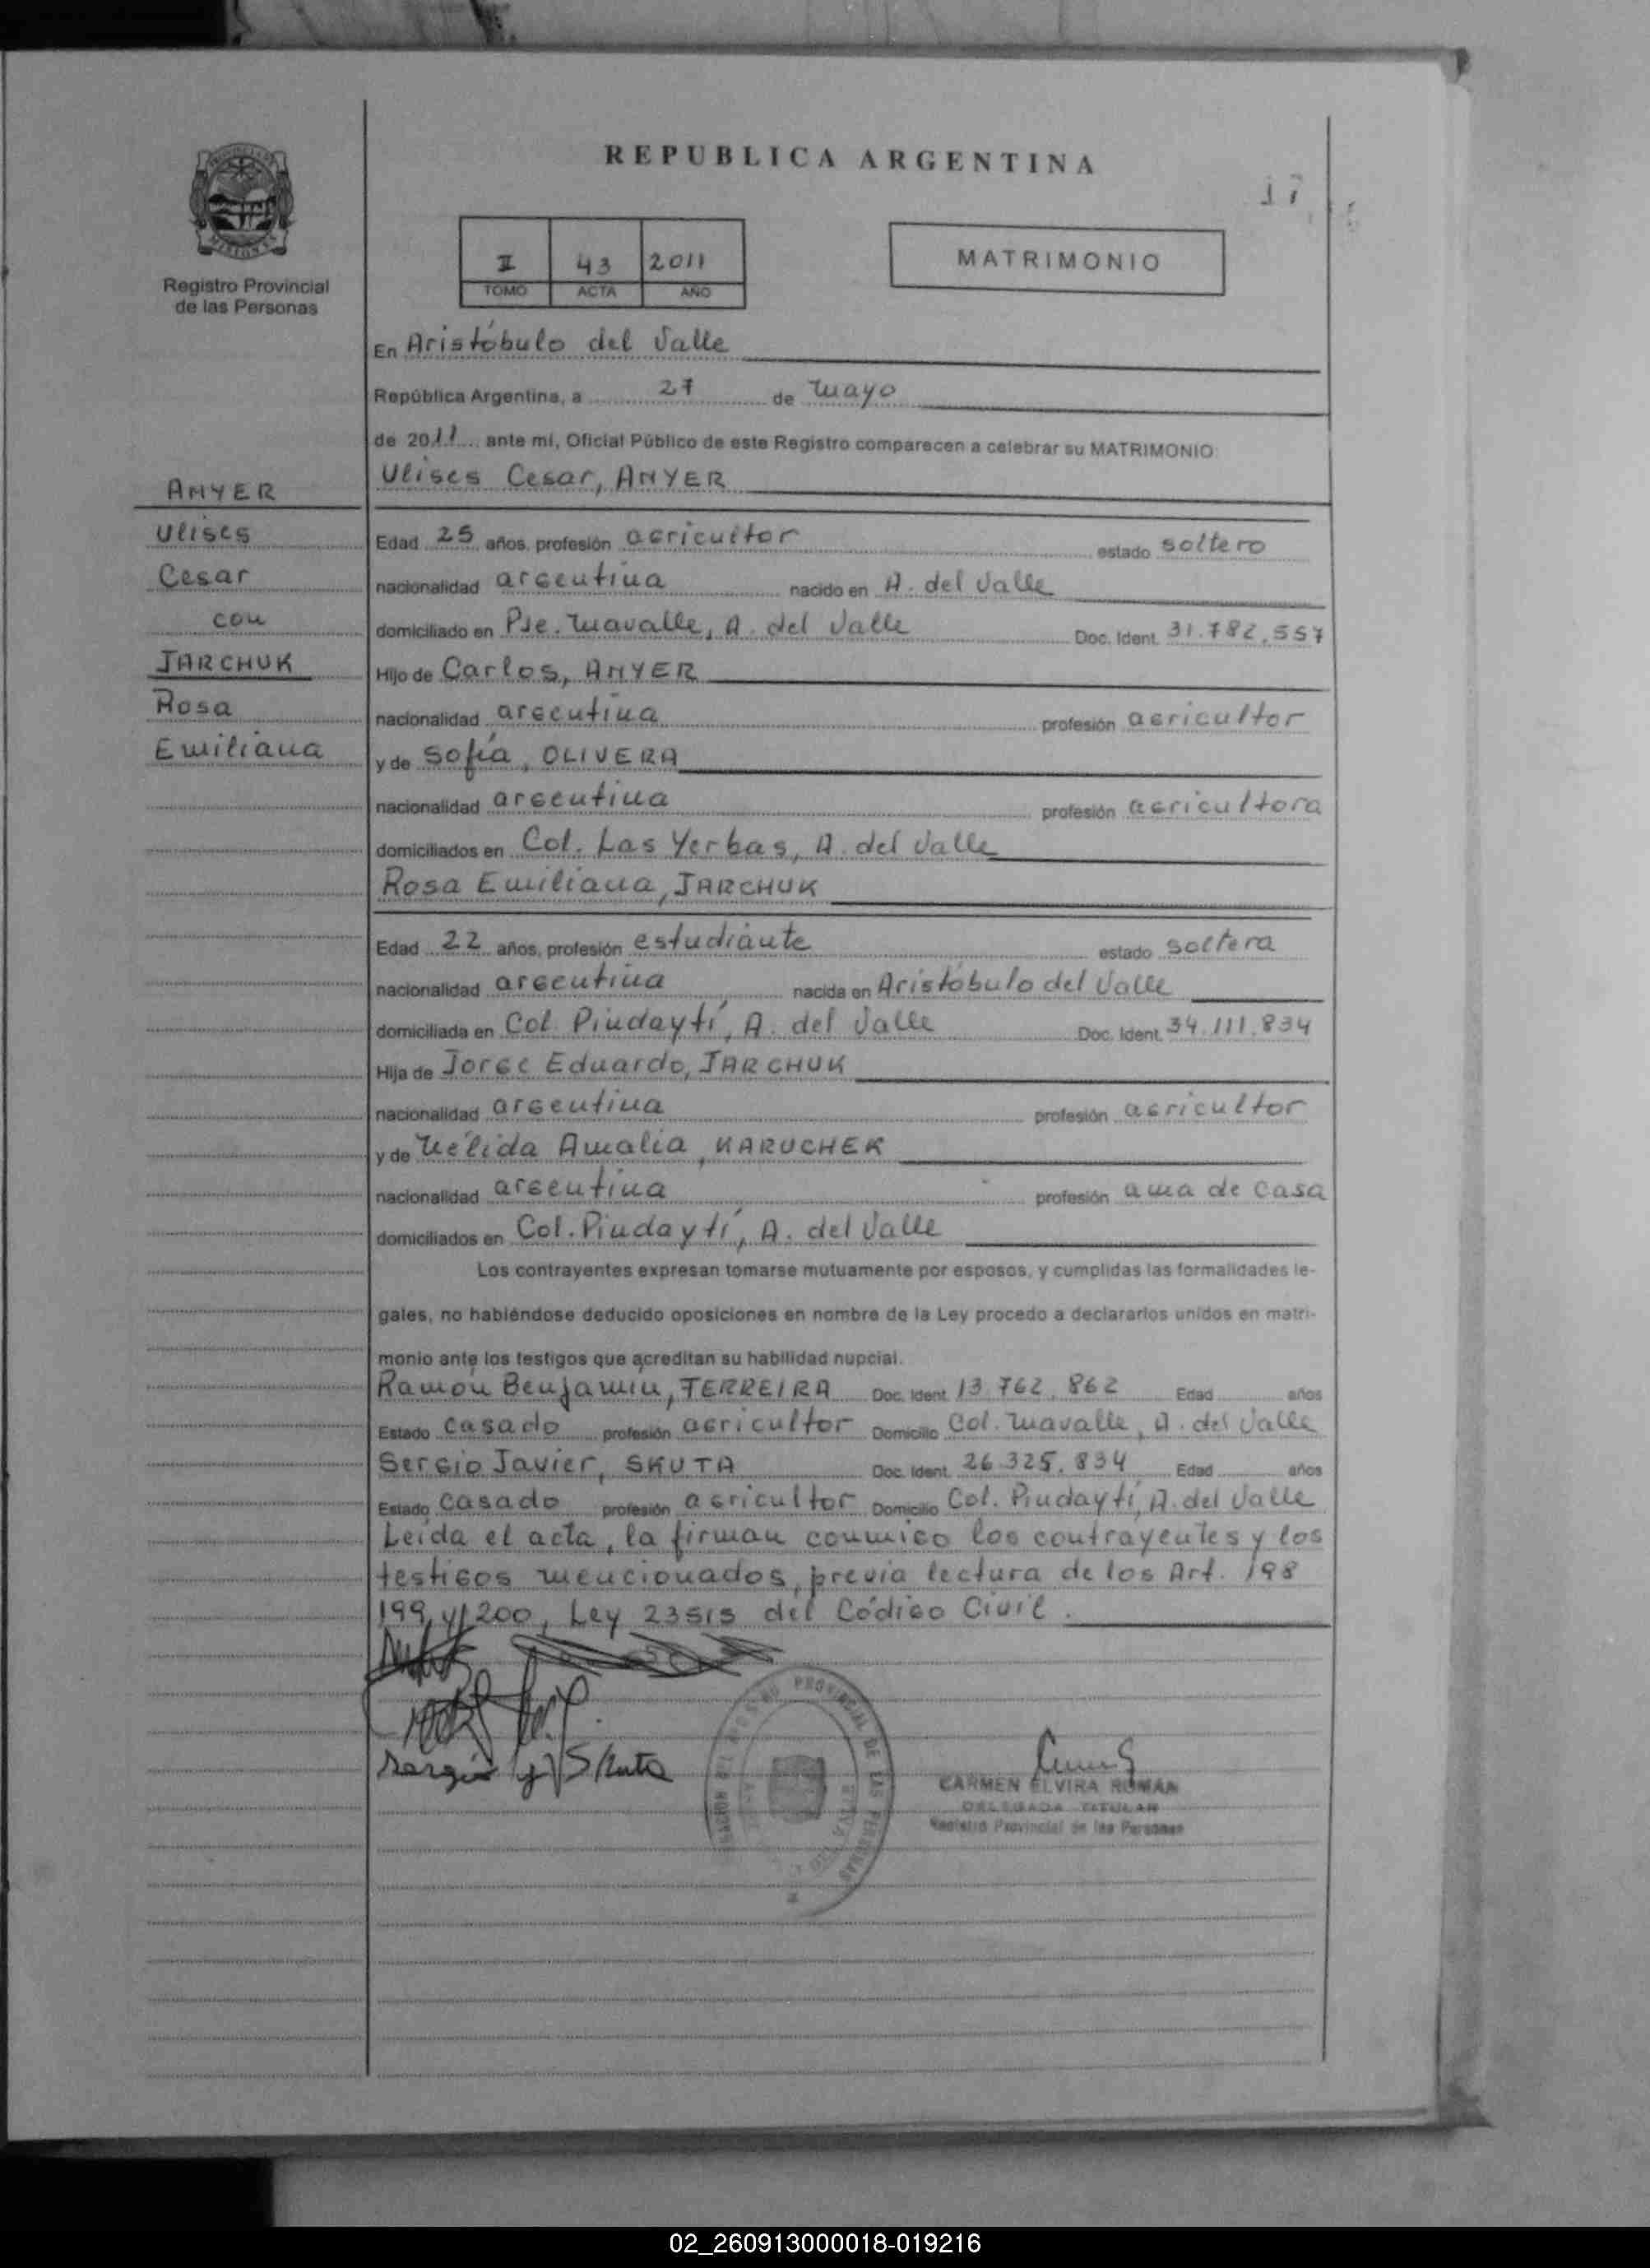 REPUBLICA ARGENTINA
17
Registro Provincial
de las Personas
II 43 2011
TOMO ACTA AÑO
MATRIMONIO
En Aristóbulo del Valle
República Argentina, a 27 de mayo
de 2011 ante mí, Oficial Público de este Registro comparecen a celebrar su MATRIMONIO:
Ulises Cesar, ANYER
ANYER
Ulises
Cesar
con
JARCHUK
Rosa
Emiliana
Edad 25 años, profesión agricultor estado soltero
nacionalidad argentina nacido en A. del Valle
domiciliado en Pje. Mavalle, A. del Valle Doc. Ident. 31.782.557
Hijo de Carlos, ANYER
nacionalidad argentina profesión agricultor
y de Sofía, OLIVERA
nacionalidad argentina profesión agricultora
domiciliados en Col. Las Yerbas, A. del Valle
Rosa Emiliana, JARCHUK
Edad 22 años, profesión estudiante estado soltera
nacionalidad argentina nacida en Aristóbulo del Valle
domiciliada en Col. Pindaytí, A. del Valle Doc. Ident. 34.111.834
Hija de Jorge Eduardo, JARCHUK
nacionalidad argentina profesión agricultor
y de Nélida Amalia, KARUCHEK
nacionalidad argentina profesión ama de casa
domiciliados en Col. Pindaytí, A. del Valle
Los contrayentes expresan tomarse mutuamente por esposos, y cumplidas las formalidades le-
gales, no habiéndose deducido oposiciones en nombre de la Ley procedo a declararlos unidos en matri-
monio ante los testigos que acreditan su habilidad nupcial.
Ramón Benjamín, TERREIRA Doc. Ident. 13.762.862 Edad años
Estado casado profesión agricultor Domicilio Col. Mavalle, A. del Valle
Sergio Javier, SKUTA Doc. Ident. 26.325.834 Edad años
Estado casado profesión agricultor Domicilio Col. Pindaytí, A. del Valle
Leída el acta, la firman conmigo los contrayentes y los
testigos mencionados, previa lectura de los Art. 198
199, y 200, Ley 23515 del Código Civil.
Sergio J Skuta
CARMEN ELVIRA ROMAN
DELEGADA TITULAR
Registro Provincial de las Personas
02_260913000018-019216